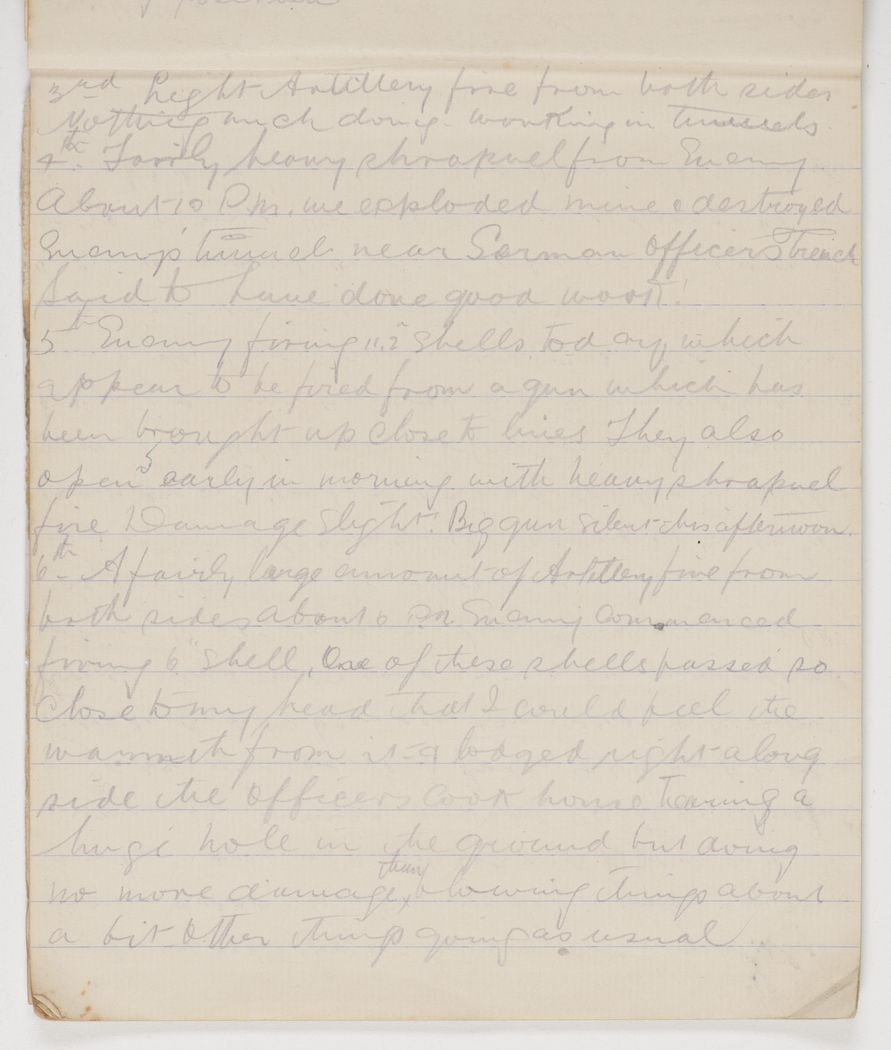 position
3rd Light Artillery fire from both sides
Nothing much doing. working in tunnels.
4th. Fairly heavy shrapnel from Enemy
About 10 P.m. we exploded mine & destroyed
Enemy's tunnel near German Officers Trench
Said to have done good work!
5th Enemy firing 11.2" shells today which
appear to be fired from a gun which has
been brought up close to lines They also
open'd early in morning with heavy shrapnel
fire Damage slight. Big gun silent this afternoon.
6th. A fairly large amount of Artillery fire from
both sides about 6 P.M. Enemy commenced
firing 6" shell, One of these shells passed so
close to my head that I could feel the
warmth from it & lodged right along
side the Officers cook house tearing a
huge hole in the ground but doing
no more damage than blowing things about
a bit. Other things going as usual